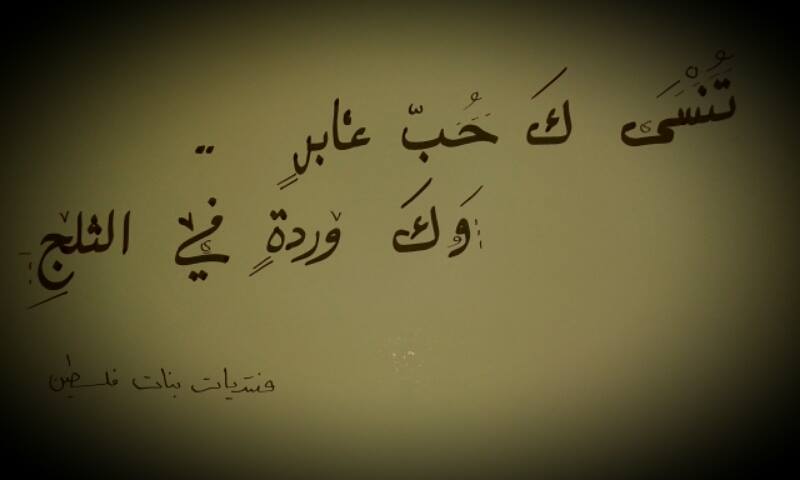 تُنْسَى كَ حُبّ عابرٍ ..
وَكَ وردةٍ في الثلجِ
منتديات بنات فلسطين